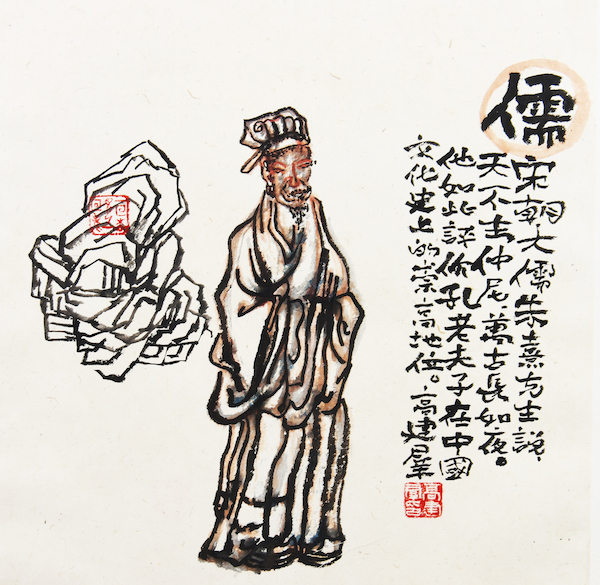 儒
宋朝大儒朱熹先生説、
天不生仲尼、萬古長如夜。
他如此評价孔老夫子在中國
文化史上的崇高地位。高建群
高建群印